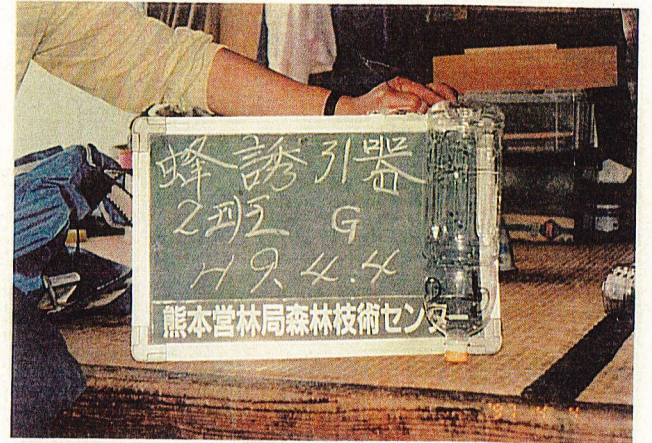 蜂誘引器
2班 G
H9.4.4
熊本営林局森林技術センター
'97 4 4